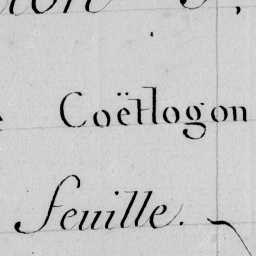 Coëtlogon
feuille.